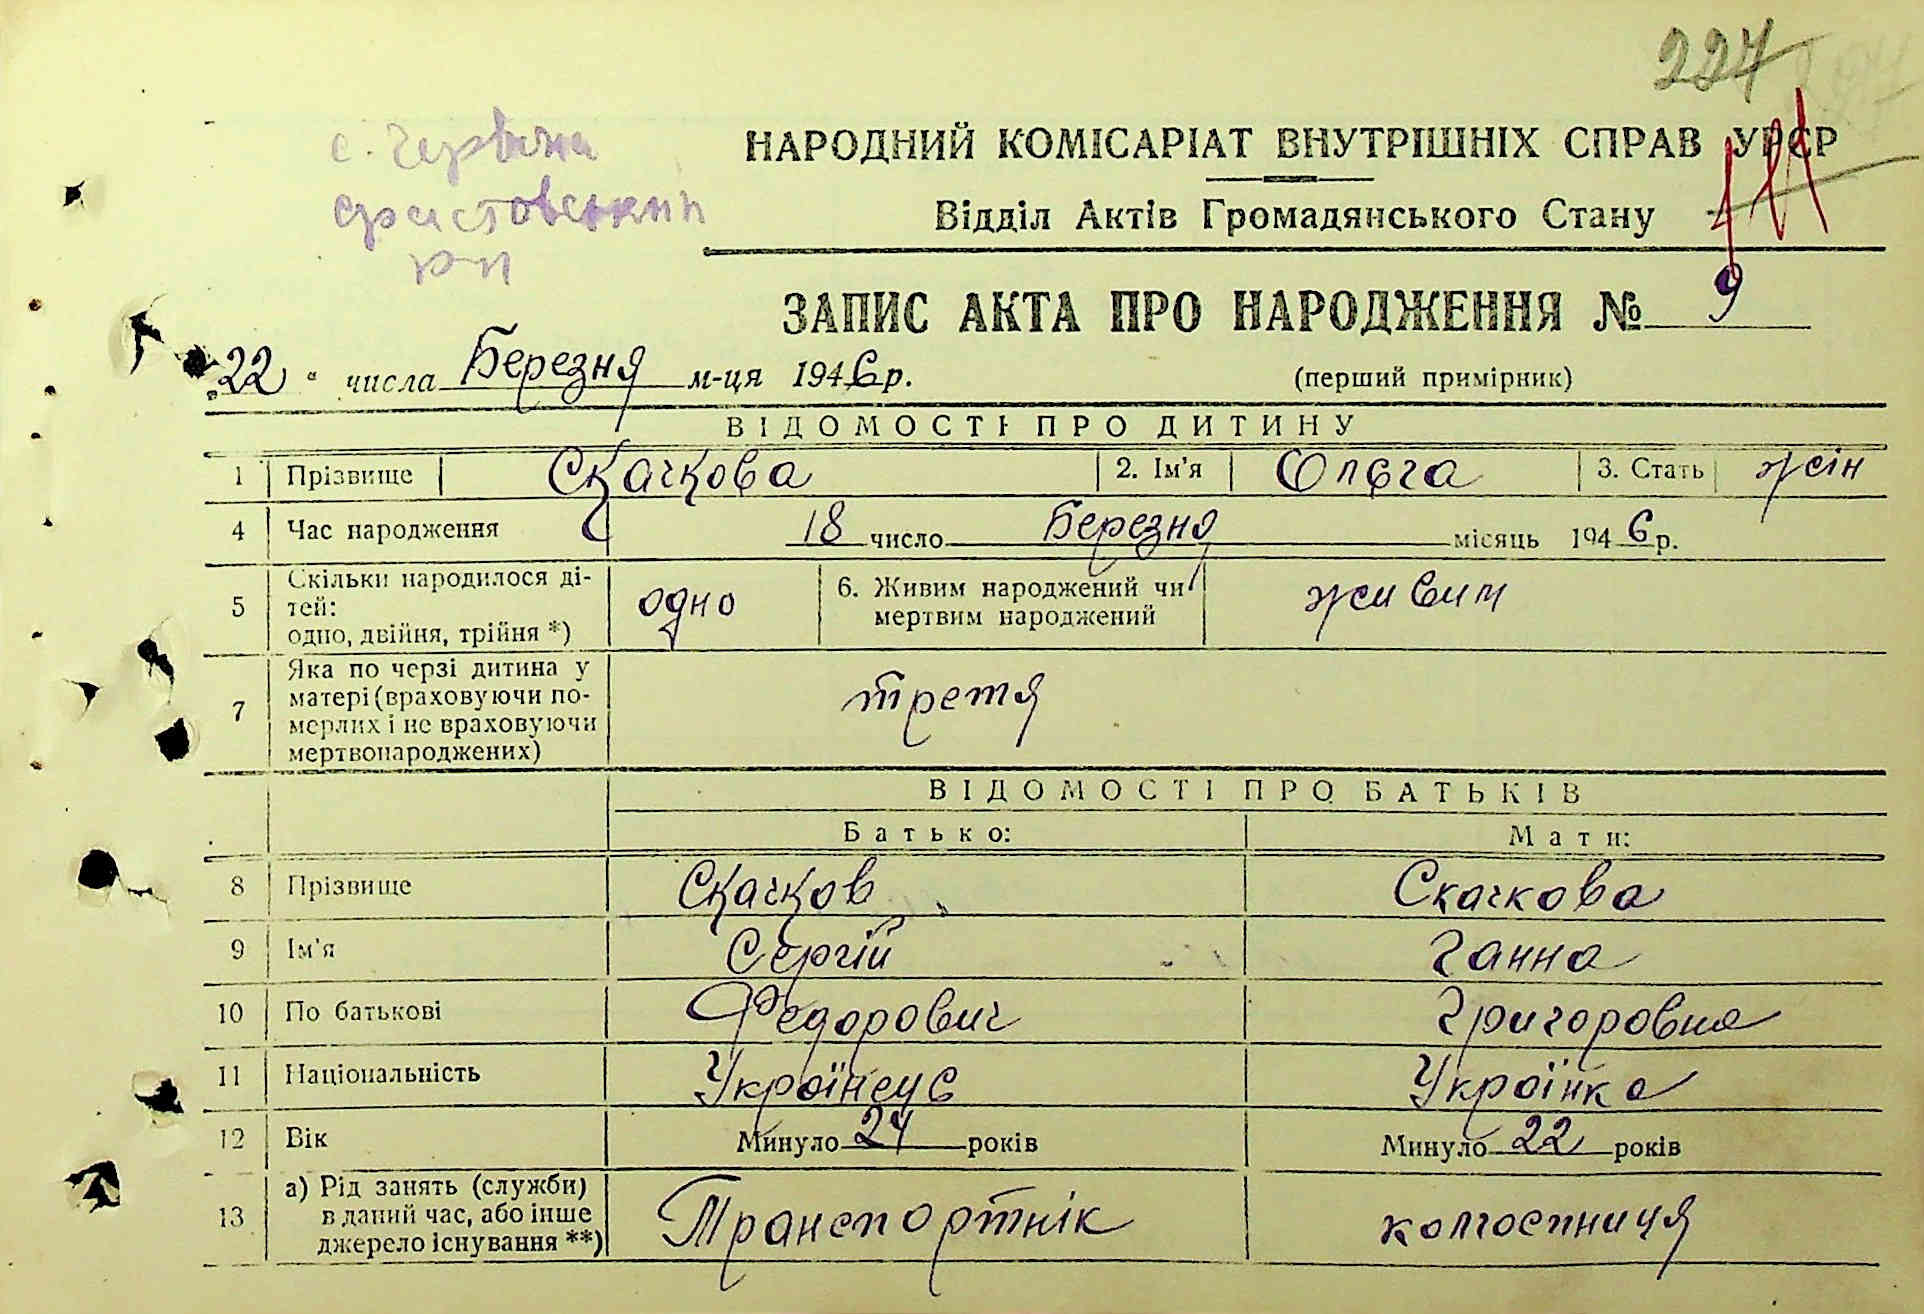 227
с. Червона
НАРОДНИЙ КОМІСАРІАТ ВНУТРІШНІХ СПРАВ УРСР
Відділ Актів Громадянського Стану
ЗАПИС АКТА ПРО НАРОДЖЕННЯ № 9
„22“ числа Березня м-ця 1946 р.
(перший примірник)
ВІДОМОСТІ ПРО ДИТИНУ
1 Прізвище Скачкова 2. Ім'я Ольга 3. Стать жін
4 Час народження 18 число Березня місяць 1946 р.
5 Скільки народилося ді-
тей:
одно, двійня, трійня *) одно
6. Живим народжений чи
мертвим народжений живим
7 Яка по черзі дитина у
матері (враховуючи по-
мерлих і не враховуючи
мертвонароджених) третя
ВІДОМОСТІ ПРО БАТЬКІВ
Батько: Мати:
8 Прізвище Скачков Скачкова
9 Ім'я Сергій Ганна
10 По батькові Федорович Григоровна
11 Національність Українець Українка
12 Вік Минуло 24 років Минуло 22 років
13 а) Рід занять (служби)
в даний час, або інше
джерело існування **) Транспортнік колгоспниця